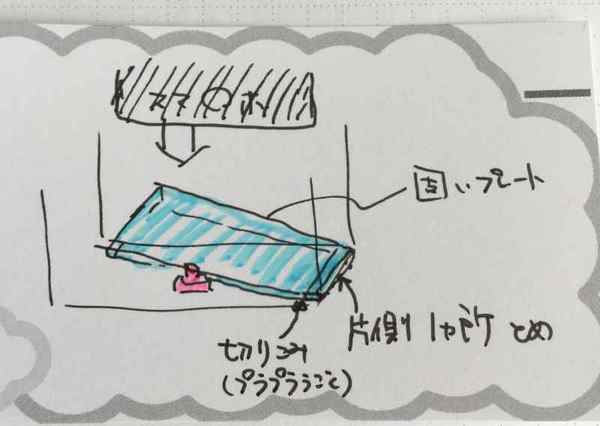 スマのホ
固いプレート
片側1ヶ所とめ
切りこみ
(プラプラうごく)